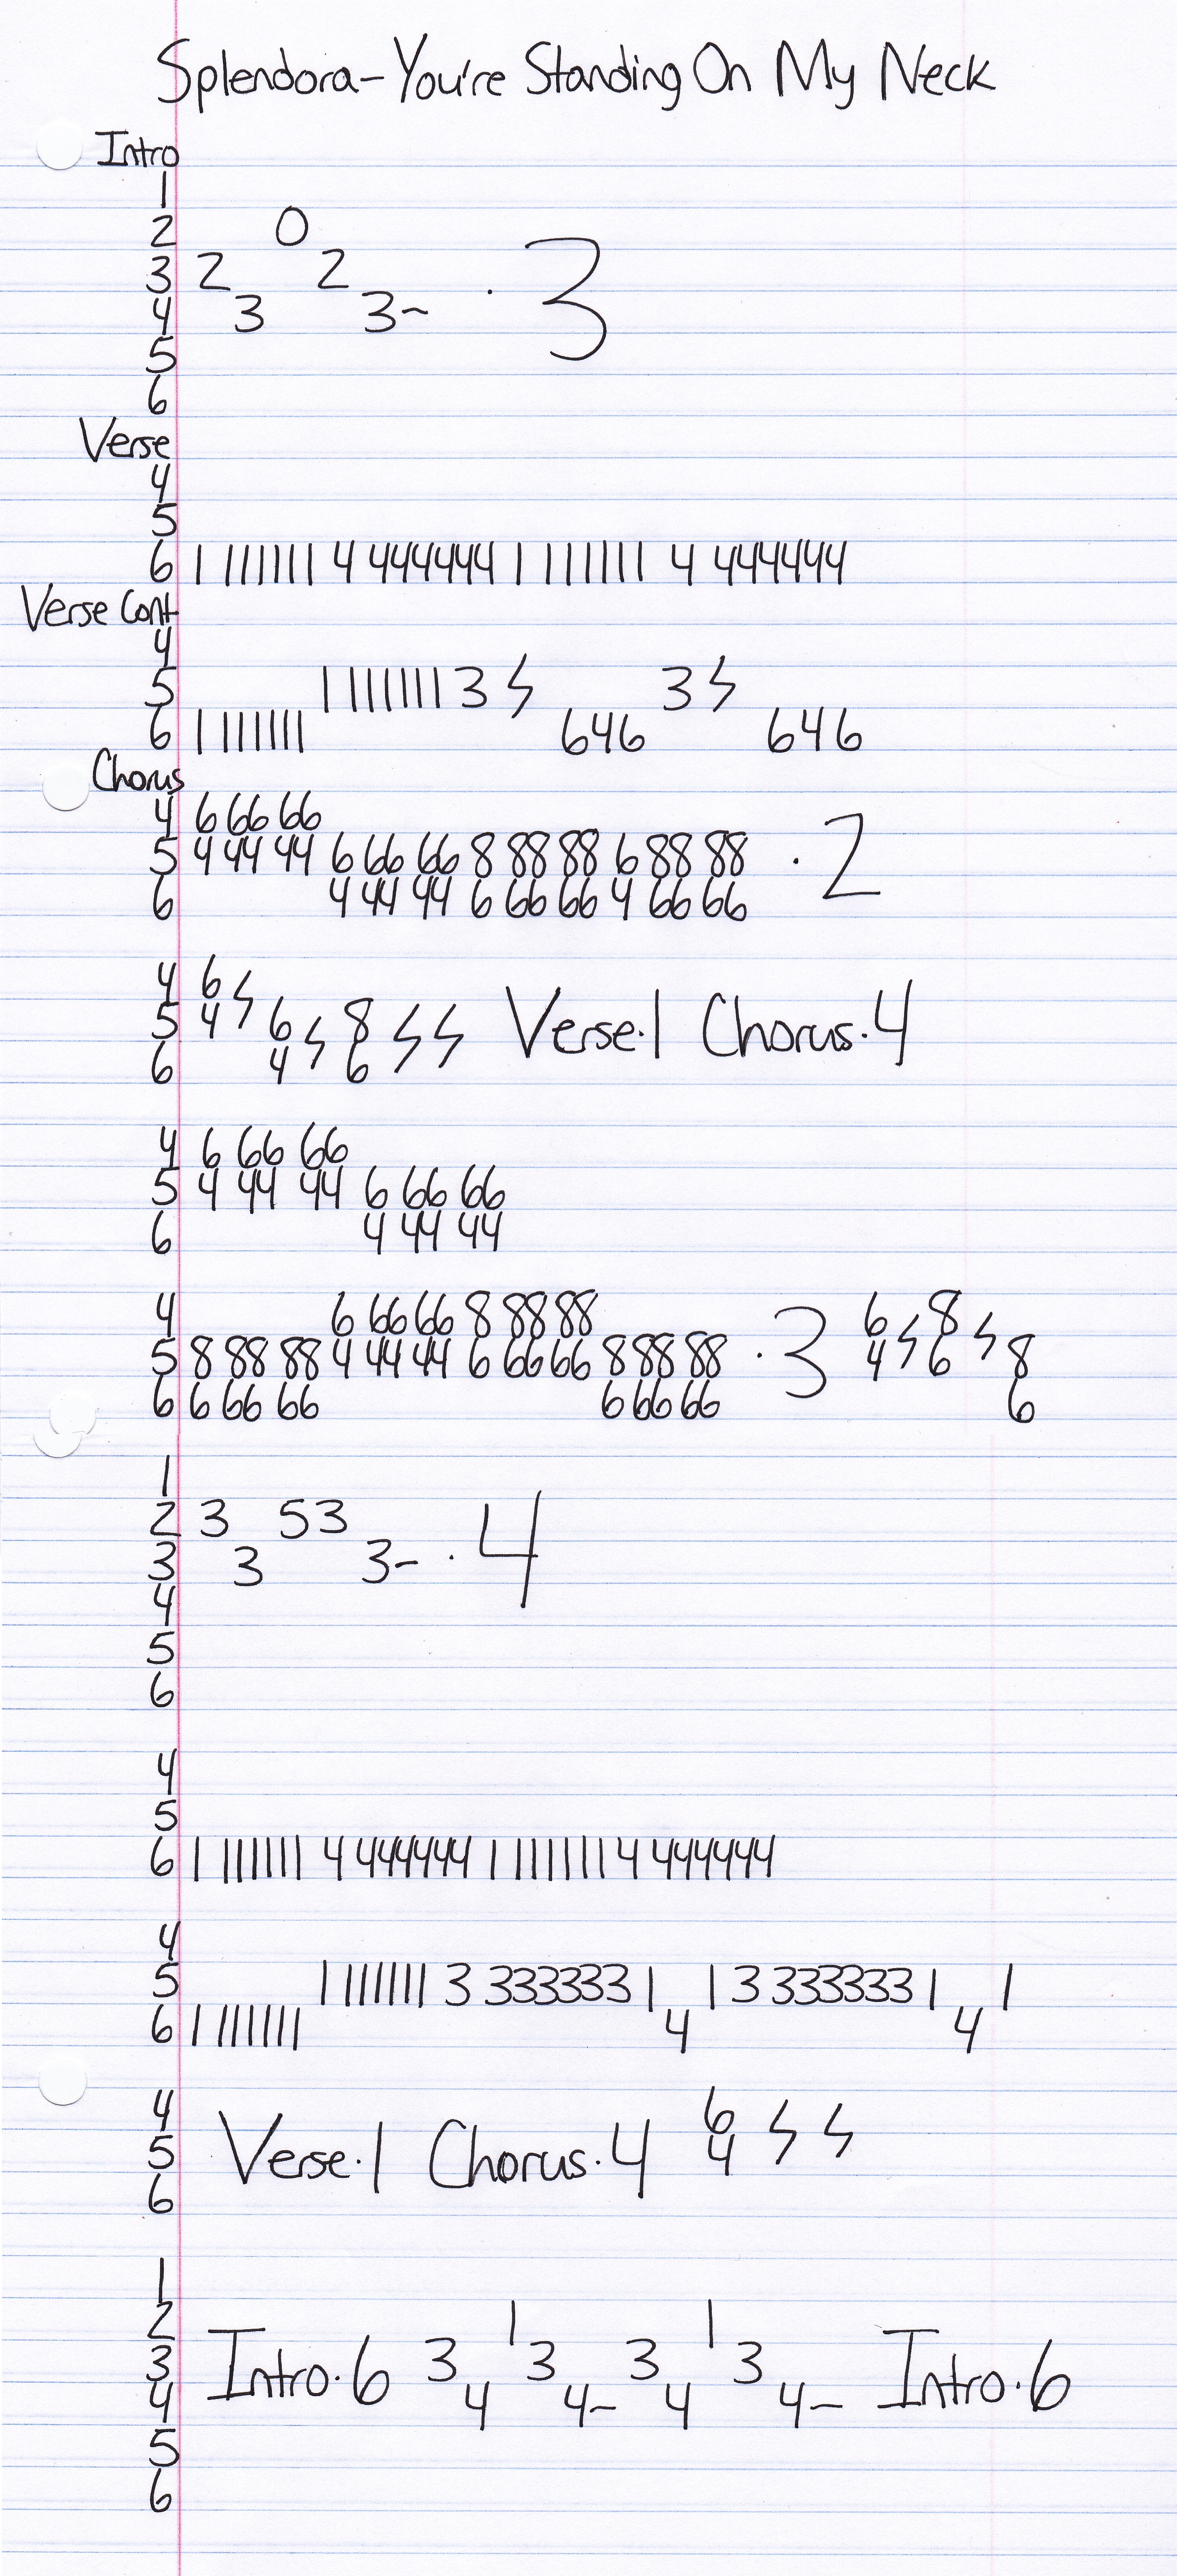 Splendora-You're Standing On My Neck
Intro
1
2 0
3 2 2 · 3
4 3 3~
5
6
Verse
4
5
6 1 111111 4 444444 1 111111 4 444444
Verse Cont
4
5 1 111111 3 ϟ 3 ϟ
6 1 111111 646 646
Chorus
4 6 66 66
5 4 44 44 6 66 66 8 88 88 6 88 88 · 2
6 4 44 44 6 66 66 4 66 66
4 6 ϟ
5 4 6 ϟ 8 ϟ ϟ Verse·1 Chorus·4
6 4 6
4 6 66 66
5 4 44 44 6 66 66
6 4 44 44
4 6 66 66 8 88 88 6 ϟ 8 ϟ
5 8 88 88 4 44 44 6 66 66 8 88 88 · 3 4 6 8
6 6 66 66 6 66 66 6
1
2 3 53
3 3 3- · 4
4
5
6
4
5
6 1 111111 4 444444 1 111111 4 444444
4
5 1 111111 3 333333 1 1 3 333333 1 1
6 1 111111 4 4
4 6 ϟ ϟ
5 Verse·1 Chorus·4 4
6
1
2 1 1
3 Intro·6 3 3 3 3 Intro·6
4 4 4- 4 4-
5
6